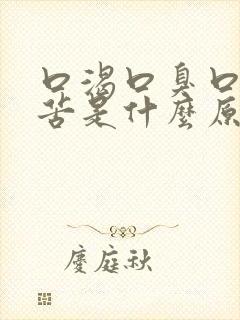 口渴口臭口
苦是什麼原
慶庭秋